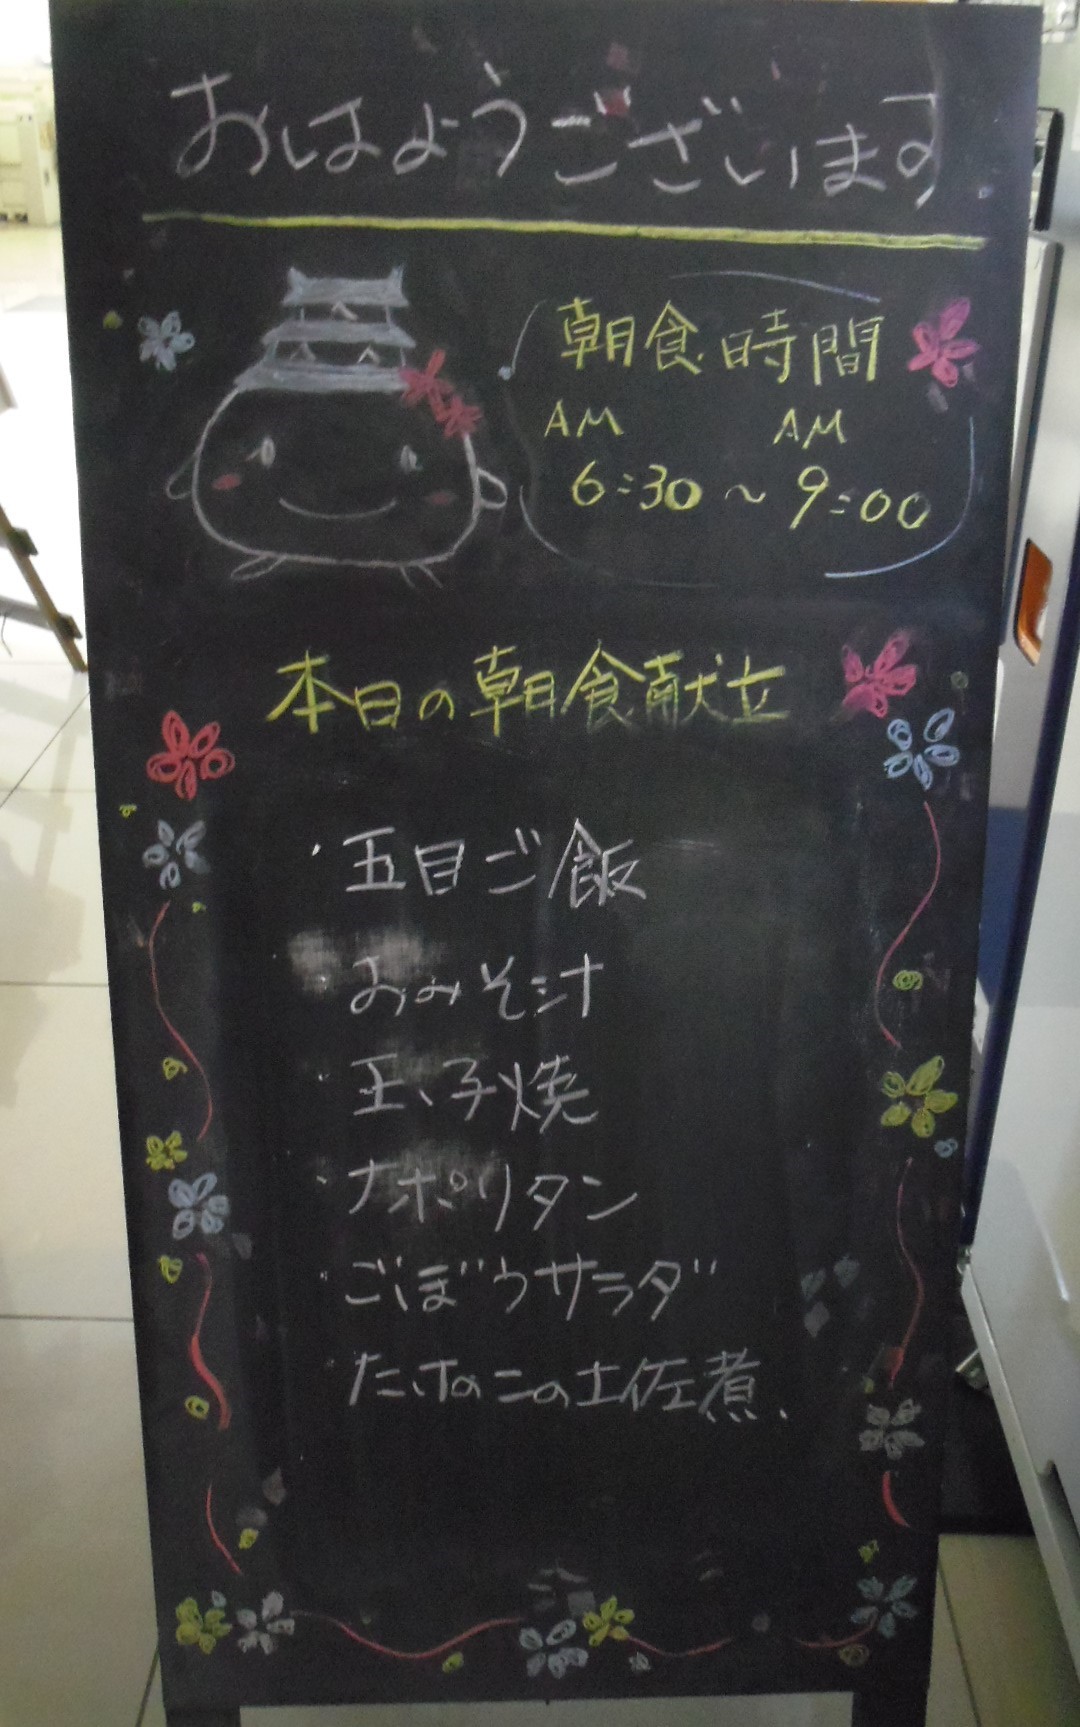 おはようございます
朝食時間
AM AM
6:30～9:00
本日の朝食献立
・五目ご飯
・おみそ汁
・玉子焼
・ナポリタン
・ごぼうサラダ
・たけのこの土佐煮